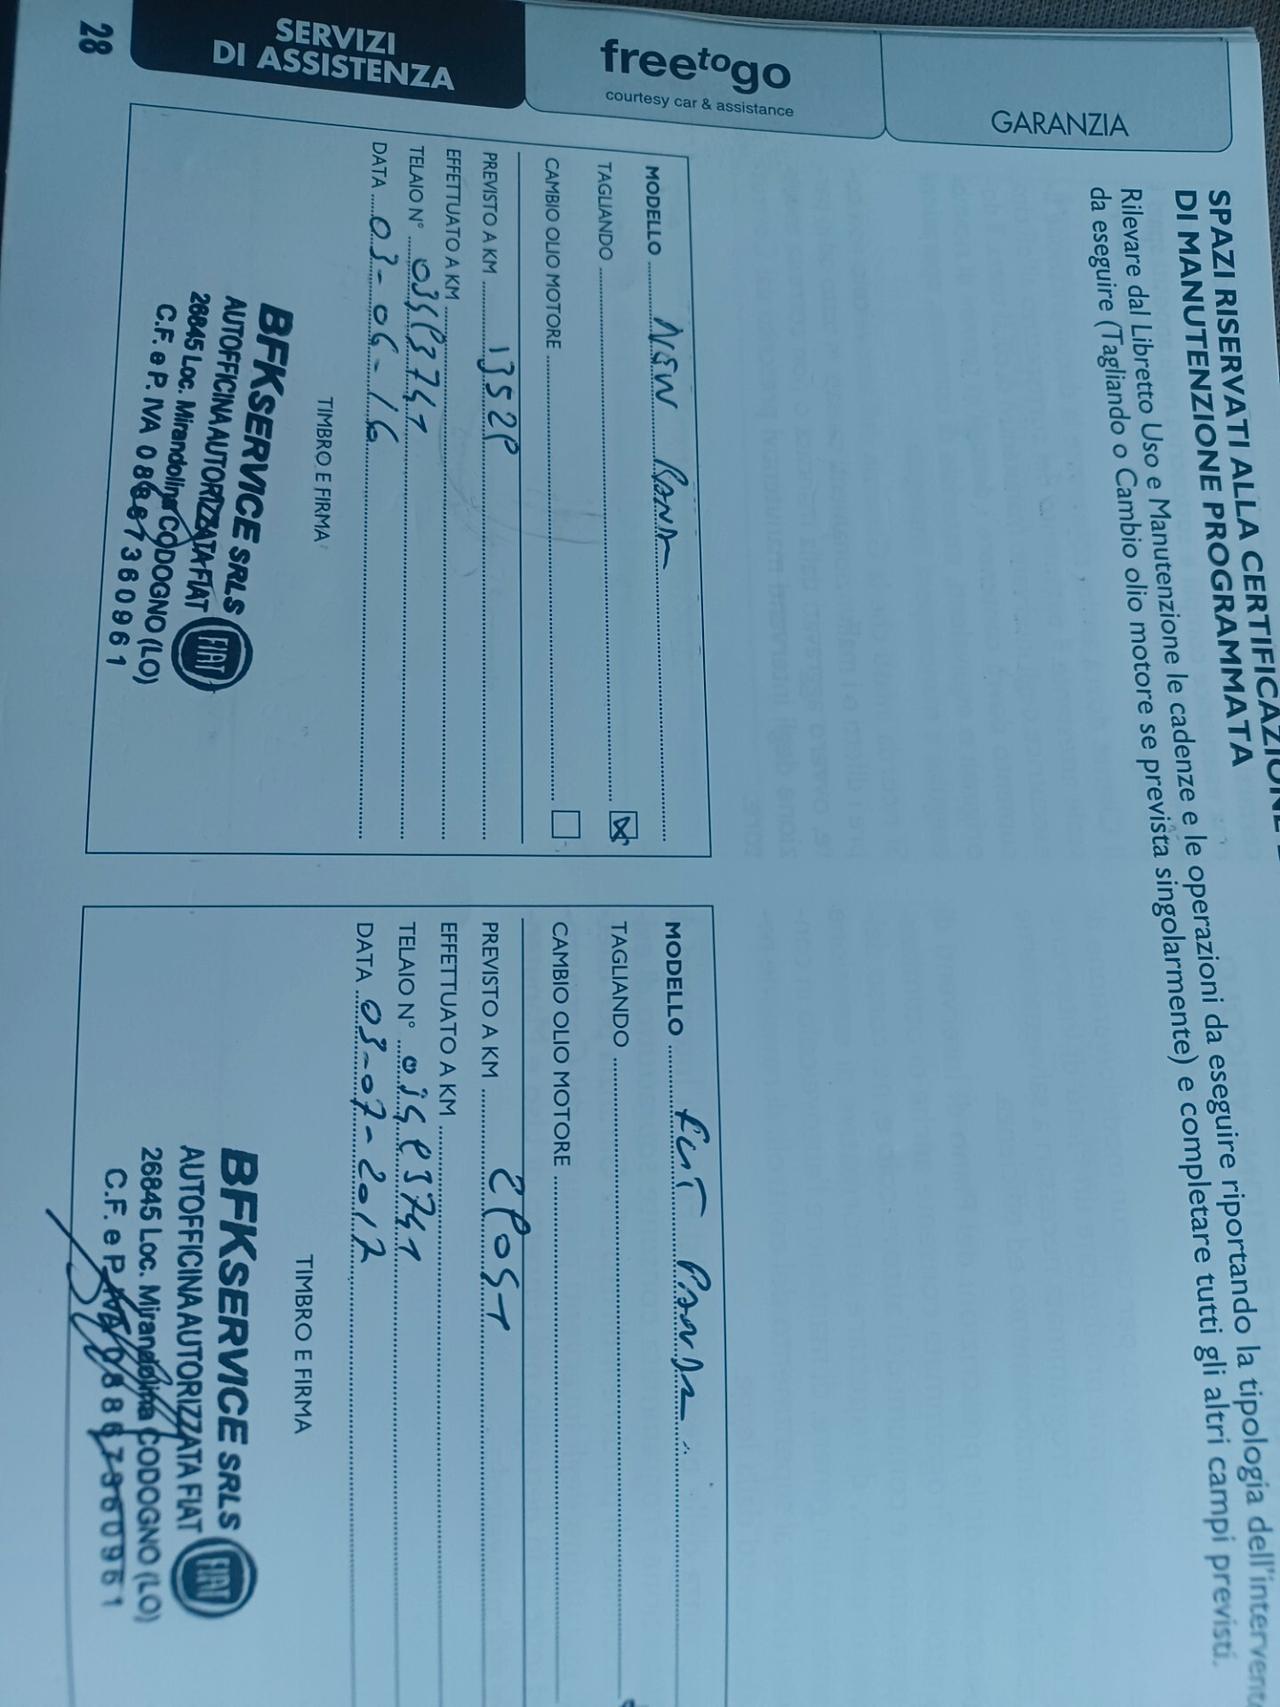 SERVIZI
DI ASSISTENZA
freetogo
courtesy car & assistance
GARANZIA
SPAZI RISERVATI ALLA CERTIFICAZIONE
DI MANUTENZIONE PROGRAMMATA
Rilevare dal Libretto Uso e Manutenzione le cadenze e le operazioni da eseguire riportando la tipologia dell'intervento
da eseguire (Tagliando o Cambio olio motore se prevista singolarmente) e completare tutti gli altri campi previsti.
MODELLO NEW PANDA
TAGLIANDO
CAMBIO OLIO MOTORE
PREVISTO A KM
EFFETTUATO A KM
TELAIO N°
DATA 03-06-16
TIMBRO E FIRMA
BFKSERVICE SRLS
AUTOFFICINA AUTORIZZATA FIAT
FIAT
26845 Loc. Mirandolina CODOGNO (LO)
C.F. e P. IVA 08867360961
MODELLO FIAT PANDA
TAGLIANDO
CAMBIO OLIO MOTORE
PREVISTO A KM
EFFETTUATO A KM
TELAIO N°
DATA
TIMBRO E FIRMA
BFKSERVICE SRLS
AUTOFFICINA AUTORIZZATA FIAT
FIAT
26845 Loc. Mirandolina CODOGNO (LO)
C.F. e P. IVA 08867360961
28